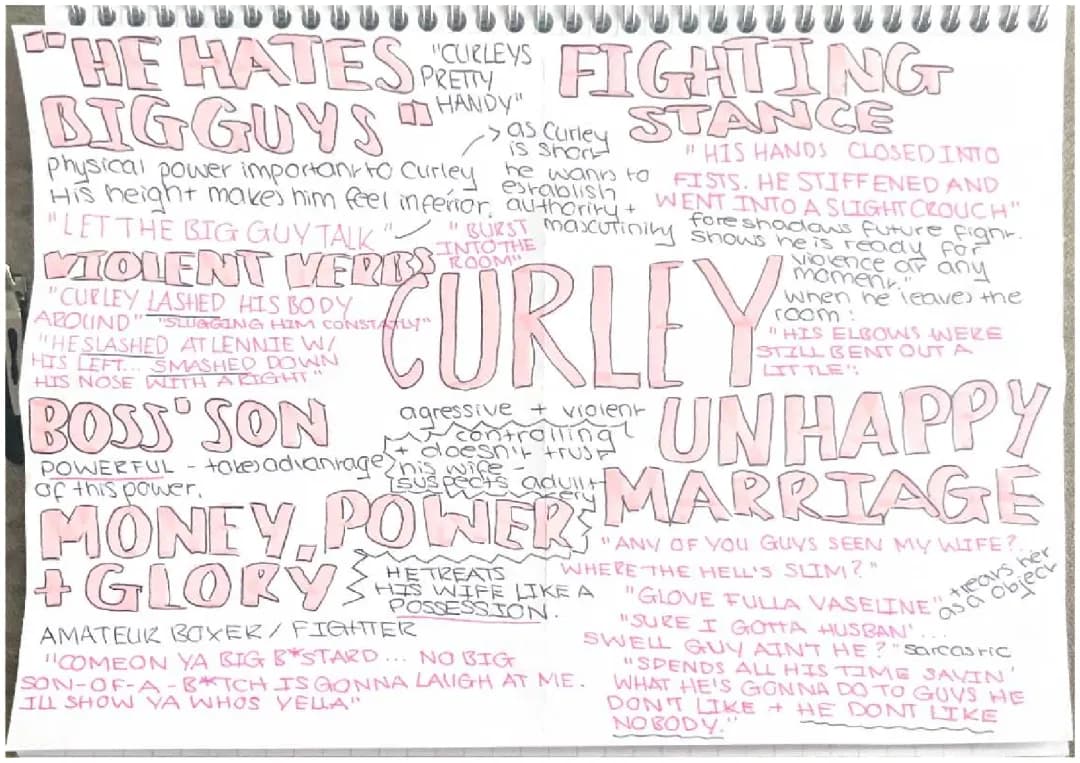 "HE HATES
BIG GUYS"
"CURLEYS
PRETTY
HANDY"
physical power important to Curley
His height makes him feel inferior.
"LET THE BIG GUY TALK"
as Curley
is short
he wants to
establish
authority +
masculinity
"BURST
INTO THE
ROOM"
FIGHTING
STANCE
"HIS HANDS CLOSED INTO
FISTS. HE STIFFENED AND
WENT INTO A SLIGHT CROUCH"
foreshadows future fight.
Shows he is ready for
violence at any
moment."
when he leaves the
room:
"HIS ELBOWS WERE
STILL BENT OUT A
LITTLE":
VIOLENT VERBS
"CURLEY LASHED HIS BODY
AROUND" "SLUGGING HIM CONSTATLY"
"HE SLASHED AT LENNIE W/
HIS LEFT... SMASHED DOWN
HIS NOSE WITH A RIGHT"
CURLEY
BOSS' SON
POWERFUL - takes advantage
of this power.
agressive + violent
controlling
+ doesn't trust
his wife -
suspects adult
ery
MONEY, POWER
+ GLORY
HE TREATS
HIS WIFE LIKE A
POSSESSION.
AMATEUR BOXER / FIGHTER
"COMEON YA BIG B*STARD... NO BIG
SON-OF-A-B*TCH IS GONNA LAUGH AT ME.
ILL SHOW YA WHOS YELLA"
UNHAPPY
MARRIAGE
"ANY OF YOU GUYS SEEN MY WIFE?..
WHERE THE HELL'S SLIM?"
"GLOVE FULLA VASELINE"
treats her
as a object
"SURE I GOTTA HUSBAN'...
SWELL GUY AIN'T HE?" sarcastic
"SPENDS ALL HIS TIME SAYIN'
WHAT HE'S GONNA DO TO GUYS HE
DON'T LIKE + HE DONT LIKE
NOBODY."